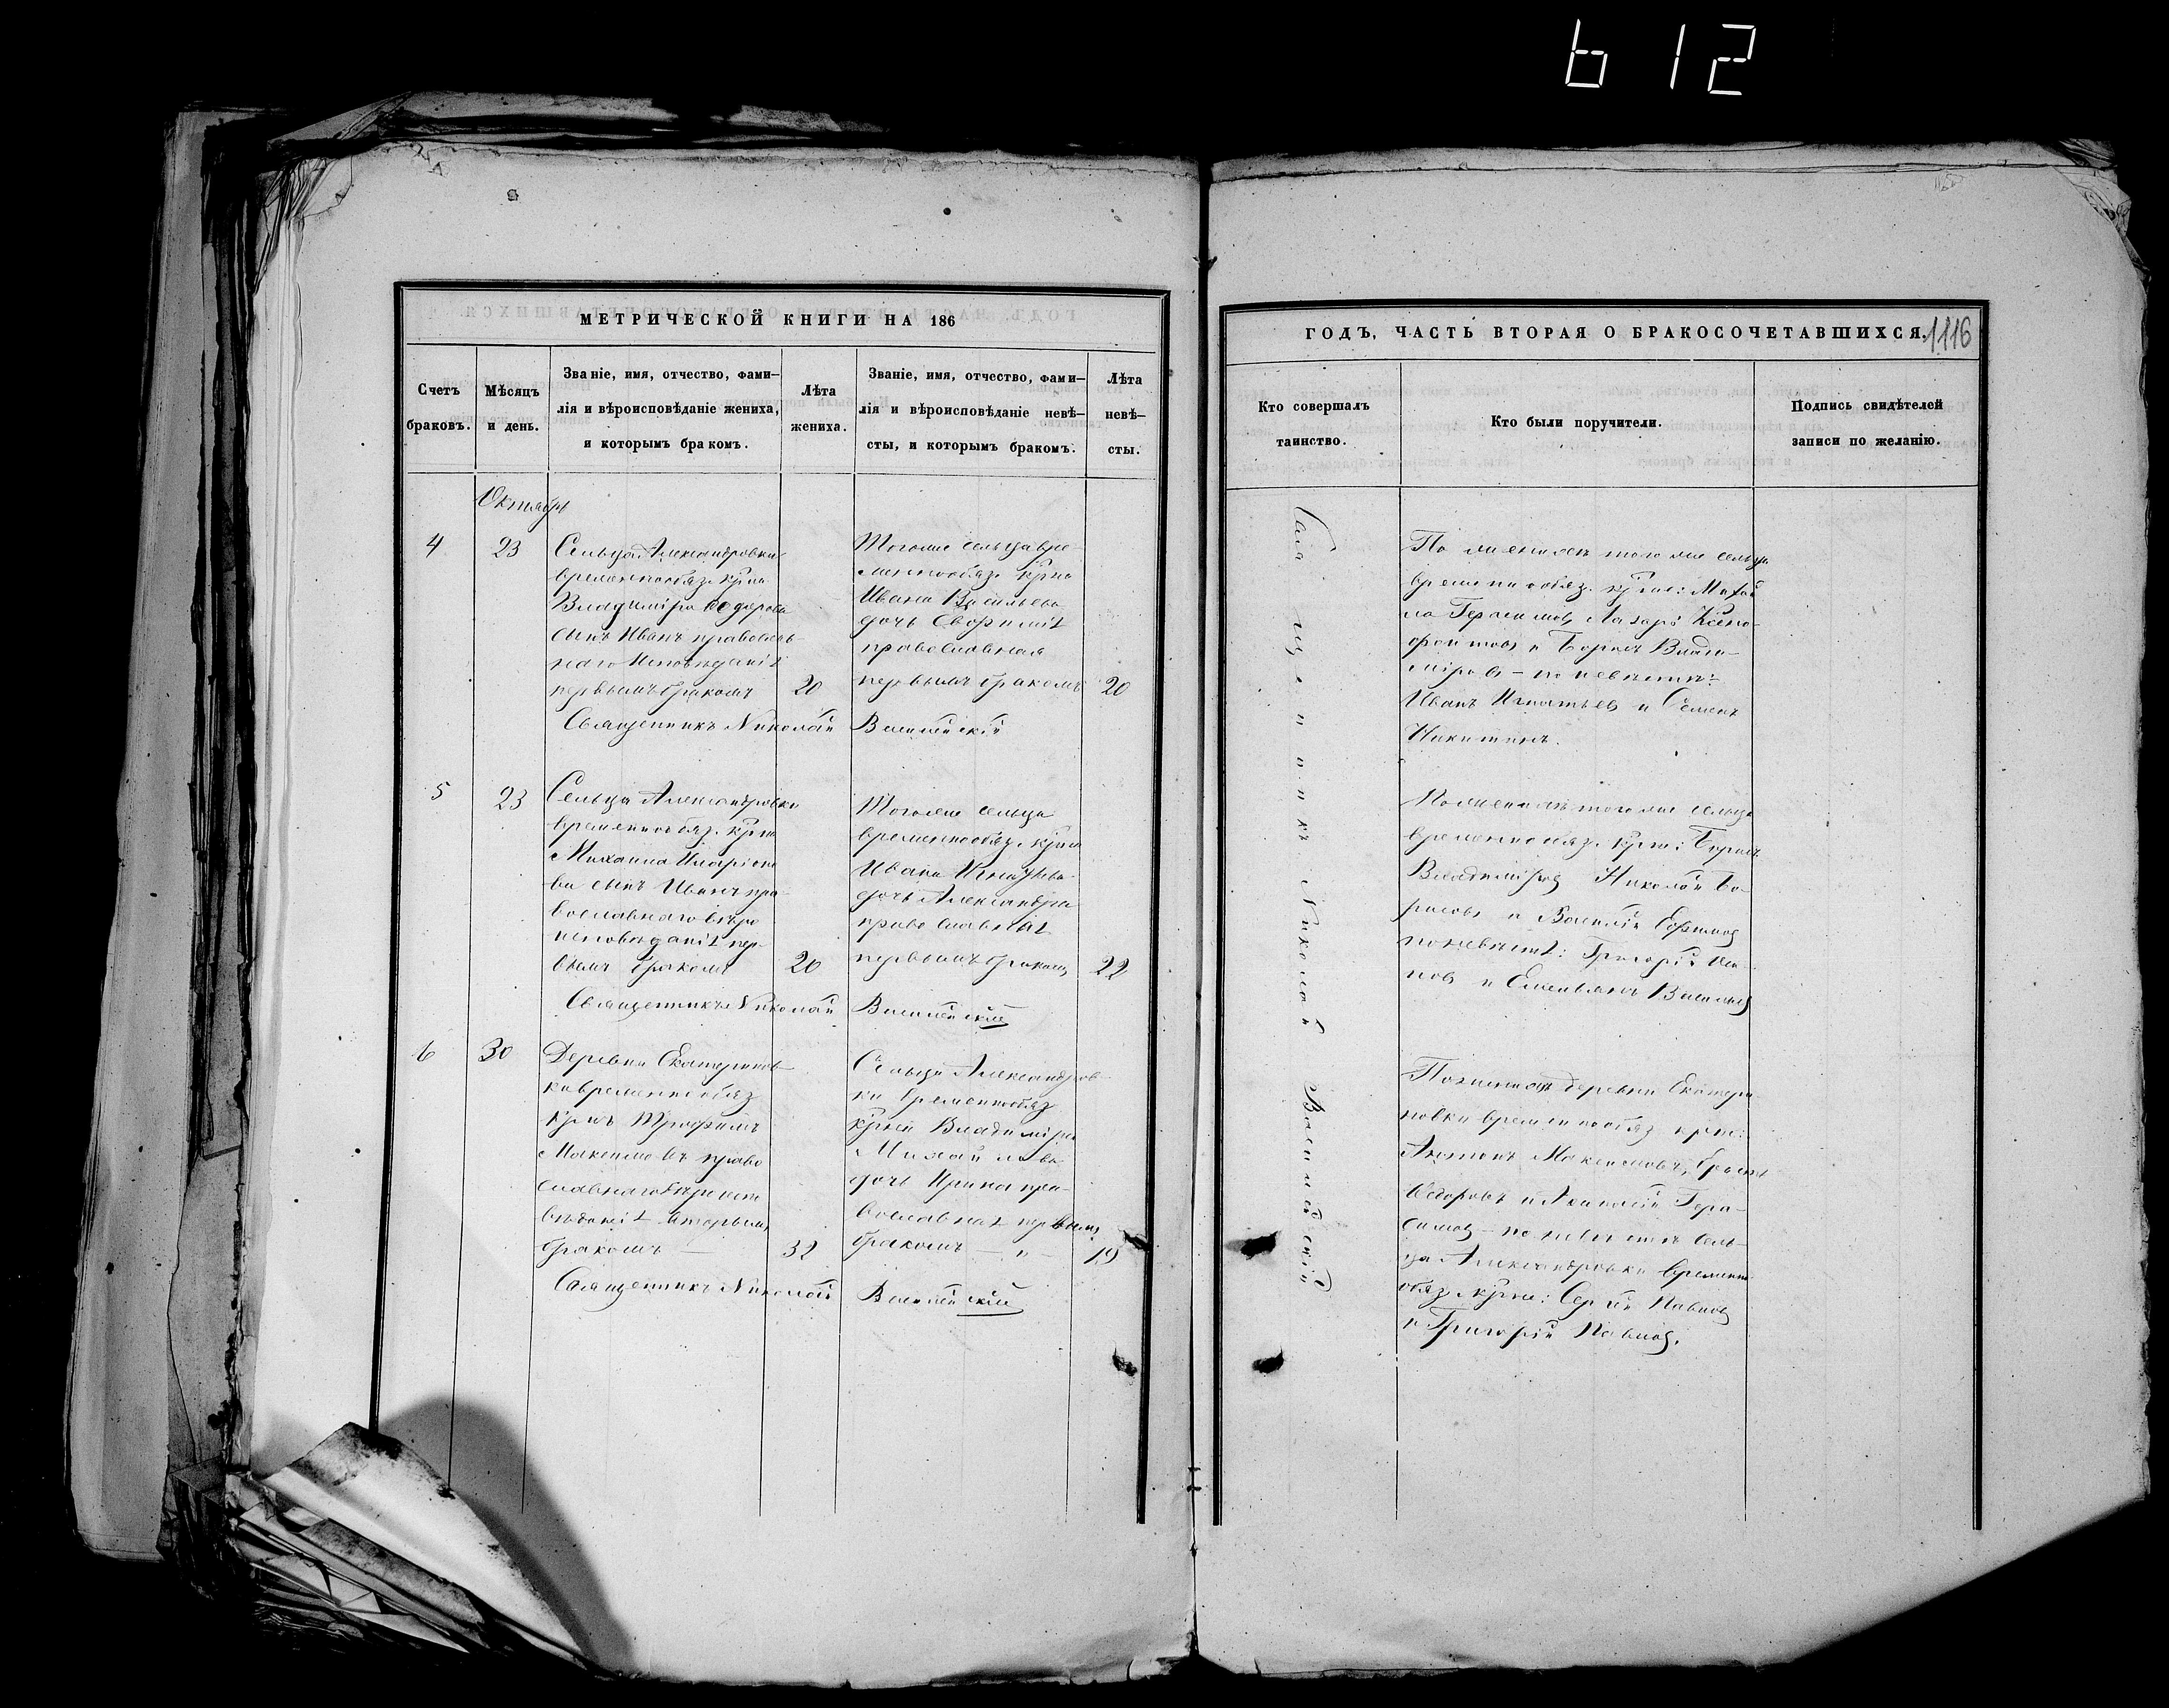 612
МЕТРИЧЕСКОЙ КНИГИ НА 186
Счетъ
браковъ.
Мѣсяцъ
и день.
Званіе, имя, отчество, фами-
лія и вѣроисповѣданіе жениха,
и которымъ бракомъ.
Лѣта
жениха.
Званіе, имя, отчество, фами-
лія и вѣроисповѣданіе невѣ-
сты, и которымъ бракомъ.
Лѣта
невѣ-
сты.
Октябрь
4
23
Сельца Александровки
временнообяз. крна
Владиміра Ѳедорова
сынъ Иванъ православ-
наго исповѣданія
первымъ бракомъ
20
Тогоже сельца вре-
меннообяз. крна
Ивана Васильева
дочь Евфимія
православная
первымъ бракомъ
20
Священникъ Николай Василейскій
5
23
Сельца Александровки
временнообяз. крна
Михаила Иларіоно
ва сынъ Иванъ пра-
вославнаго вѣро
исповѣданія пер-
вымъ бракомъ
20
Тогоже сельца
временнообяз. крна
Ивана
дочь Александра
православная
первымъ бракомъ
22
Священникъ Николай Василейскій
6
30
Деревни Екатеринов-
ки временнообяз
крнъ Трофимъ
Максимовъ право
славнаго вѣроиспо
вѣданія вторымъ
бракомъ —
32
Сельца Александров-
ки временнообяз
крна Владиміра
Михайлова
дочь Ирина пра-
вославная первымъ
бракомъ — " —
19
Священникъ Николай Василейскій
ГОДЪ, ЧАСТЬ ВТОРАЯ О БРАКОСОЧЕТАВШИХСЯ.
1116
Кто совершалъ
таинство.
Кто были поручители.
Подпись свидѣтелей
записи по желанію.
Священникъ Николай Василейскій
По женихѣ тогоже сельца
временнообяз. крне: Михай
ла Герасимов, Лазарь Ксено-
фонтовъ и Борисъ Влади-
міровъ — по невѣстѣ:
Иванъ Игнатьевъ и Семенъ
Никитинъ.
По женихѣ тогоже сельца
временнообяз. крне: Борисъ
Владиміров Николай Бо-
рисовъ и Василій Ефимов
по невѣстѣ: Григорій
и Емельянъ Васильев
По женихѣ деревни Екатери
новки временнообяз крне:
Антонъ Максимовъ,
Ѳедоровъ и Гера-
симов — по невѣстѣ сель-
ца Александровки временно
обяз крне: Сергѣй Павлов
и Григорій Павлов.